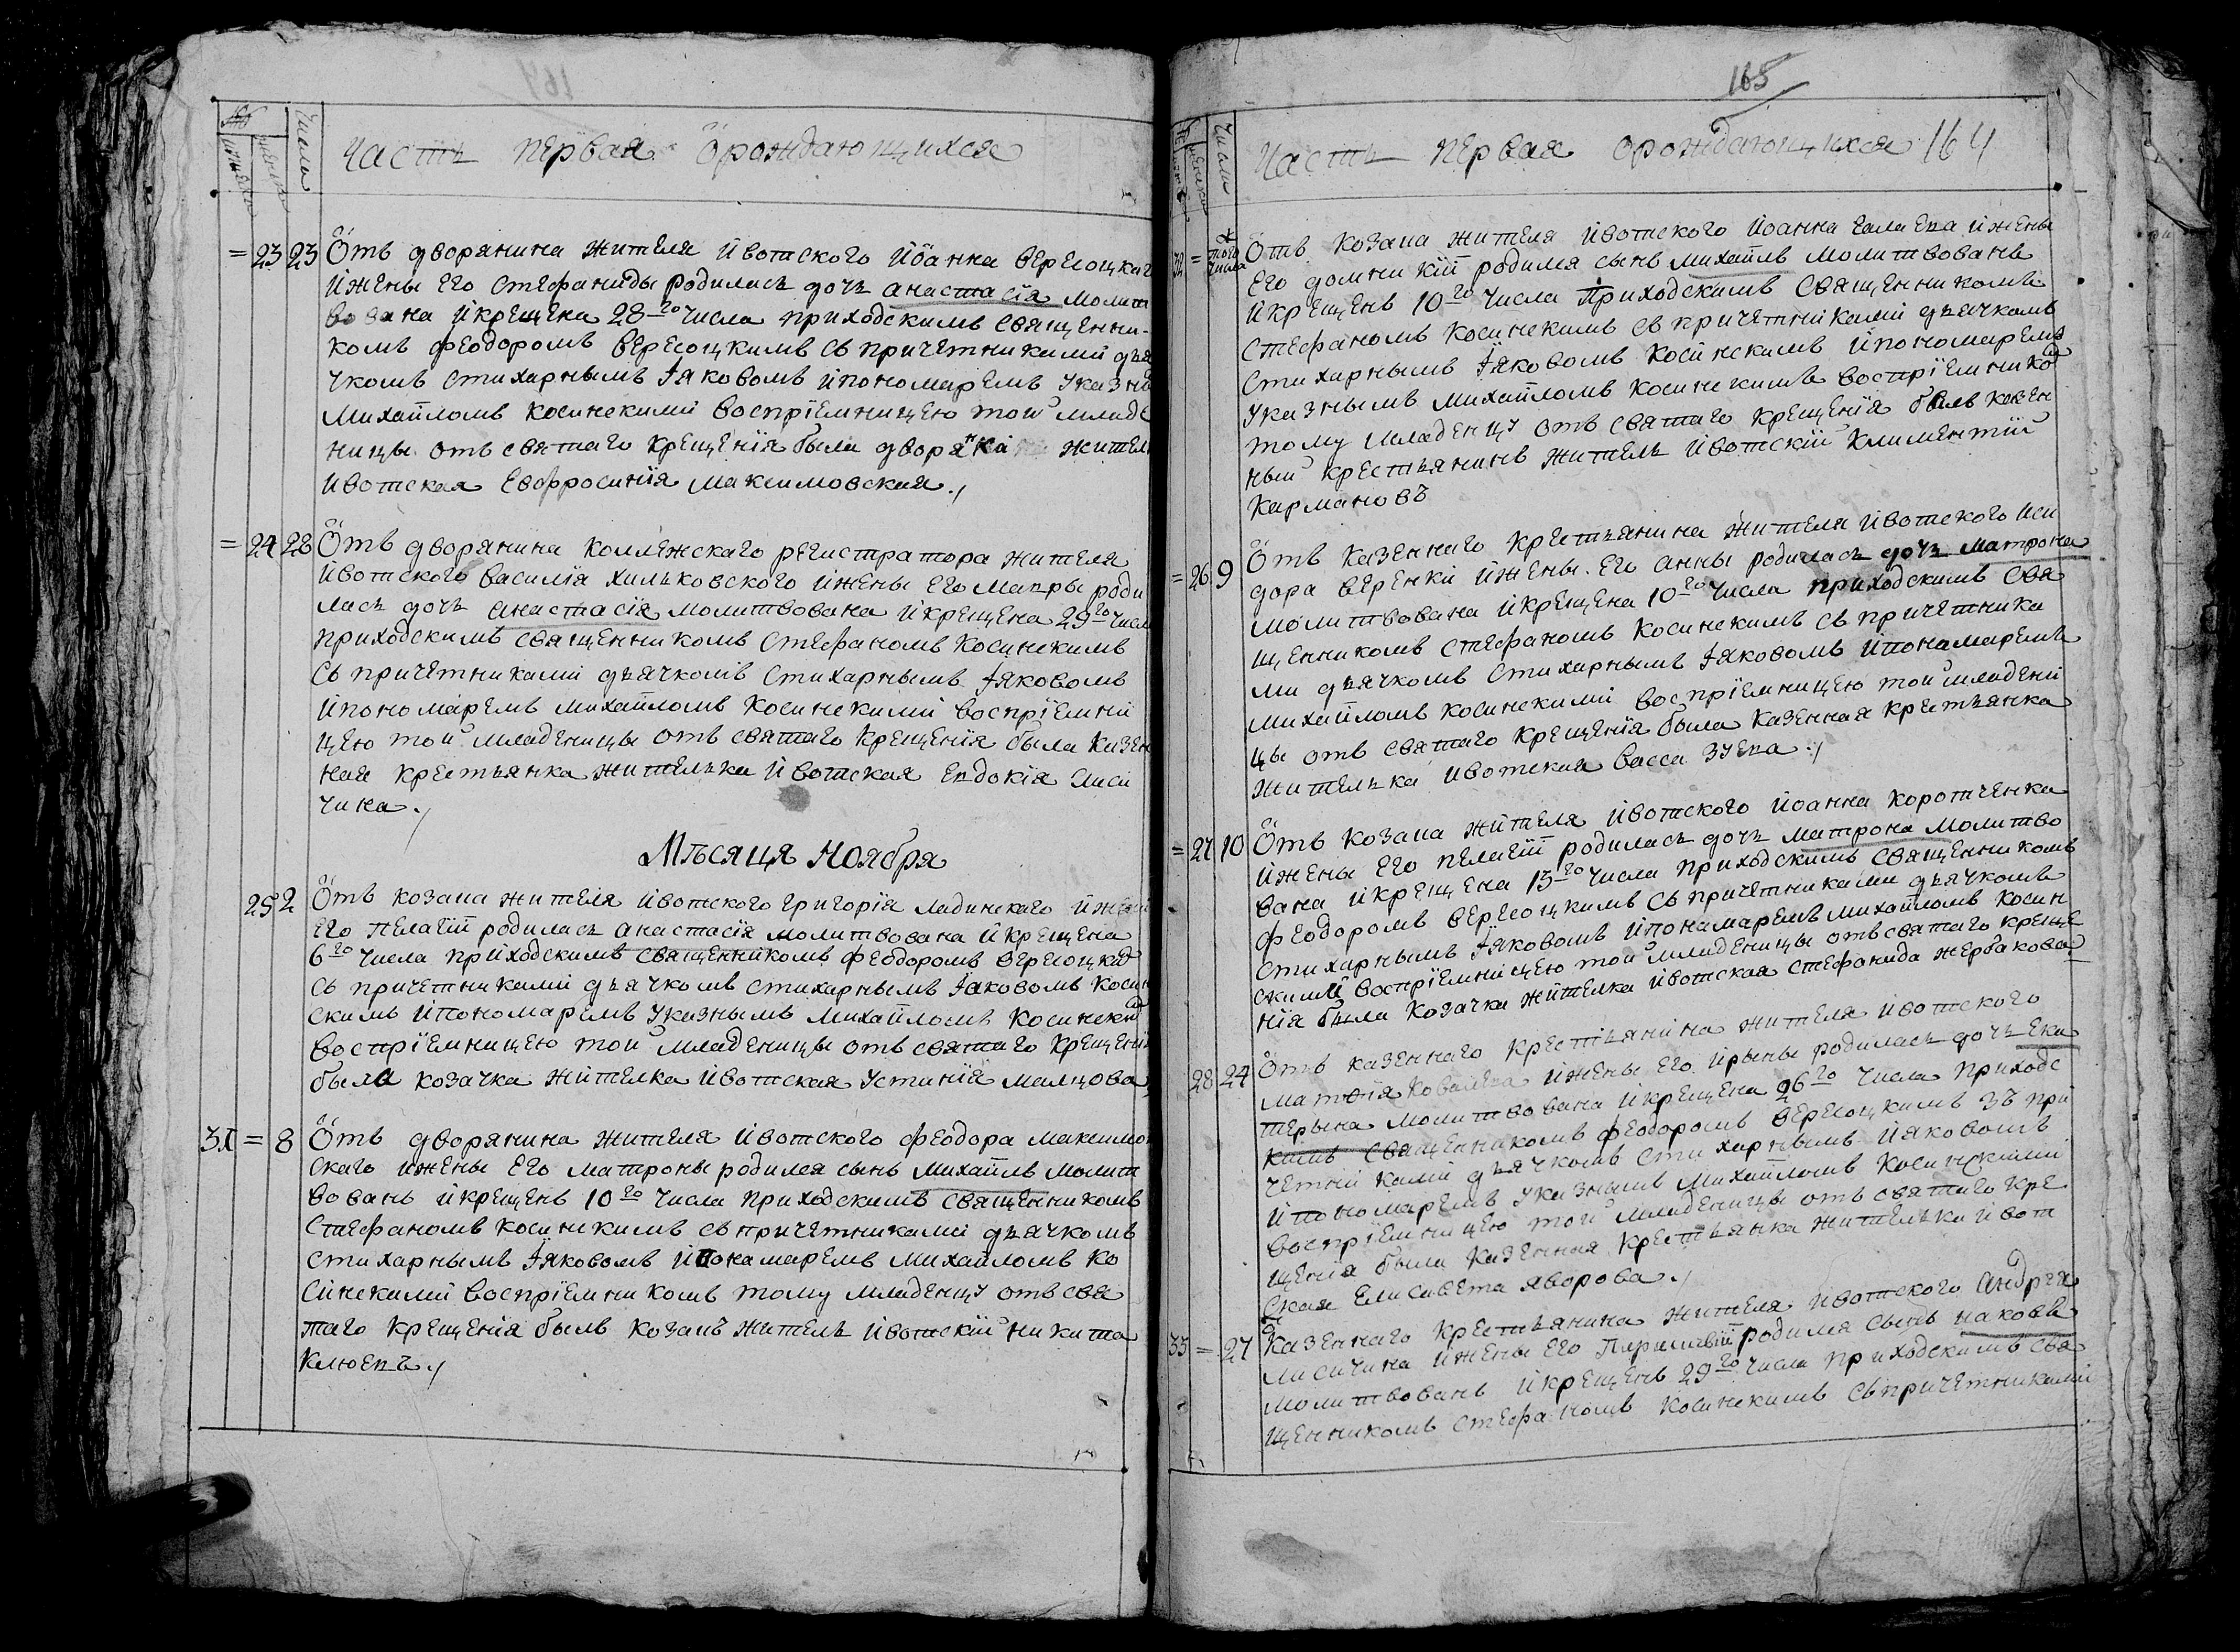 164
№
Числа
Часть первая орождающихся
= 23 23 Отъ дворянина жителя Ивотского Иоанна Вересоцкаг
ижены Его Стефаниды родилась дочь Анастасія молит
вована икрещена 28го числа приходскимъ священни-
комъ Феодоромъ Вересоцкимъ съ причетниками дья
чкомъ стихарнымъ Іяковомъ ипономаремъ указны
Михайломъ Косинскими воспріемницею той младе
ницы отъ святаго крещенія была дворянка жител
Ивотская Евфросинія Максимовская.
= 24 28 Отъ дворянина коллежскаго регистратора жителя
Ивотского Василія Хильковского ижены Его Мавры роди
лась дочь Анастасія молитвована икрещена 29го числ
приходскимъ священникомъ Стефаномъ Косинскимъ
съ причетниками дьячкомъ стихарнымъ Іяковомъ
ипономаремъ Михайломъ Косинскими воспріемни
цею той младеницы отъ святаго крещенія была казен
ная крестьянка жителька Ивотская Евдокія Лиси
чина.
Мѣсяця Ноября
25 2 Отъ козака жителя Ивотского Григорія Ладинскаго ижен
Его Пелагіи родилась Анастасія молитвована икрещена
6го числа приходскимъ священникомъ Феодоромъ Вересоцки
съ причетниками дьячкомъ стихарнымъ Іаковомъ Косин
скимъ ипономаремъ указнымъ Михайломъ Косински
воспріемницею той младеницы отъ святаго крещені
была козачка жителка Ивотская Устинія Малцова
31 = 8 Отъ дворянина жителя Ивотского Феодора Максимов
скаго ижены Его Матроны родился сынъ Михаилъ молит
вованъ икрещенъ 10го числа приходскимъ священникомъ
Стефаномъ Косинскимъ съ причетниками дьячкомъ
стихарнымъ Іяковомъ ипонамаремъ Михайломъ Ко
синскими воспріемникомъ тому младенцу отъ свя
таго крещенія былъ козакъ житель Ивотскій Никита
Клюевъ.
165
№
Числа
Часть первая орождающихся 164
32 = того числа Отъ козака жителя Ивотского Иоанна Галаева ижены
Его Домникіи родился сынъ Михаилъ молитвованъ
икрещенъ 10го числа приходскимъ священникомъ
Стефаномъ Косинскимъ съ причетниками дьячкомъ
стихарнымъ Іяковомъ Косинскимъ ипономаремъ
указнымъ Михайломъ Косинскимъ воспріемнико
тому младенцу отъ святаго крещенія былъ казен
ный крестьянинъ житель Ивотскій Климентій
Кармановъ
= 26 9 Отъ казеннаго крестьянина жителя Ивотского Иси
дора Веренки ижены Его Анны родилась дочь Матрона
молитвована икрещена 10го числа приходскимъ свя
щенникомъ Стефаномъ Косинскимъ съ причетника
ми дьячкомъ стихарнымъ Іяковомъ ипонамаремъ
Михайломъ Косинскими воспріемницею той младени
цы отъ святаго крещенія была казенная крестьянка
жителька Ивотская Васса Зуева.
= 27 10 Отъ козака жителя Ивотского Иоанна Коротченка
ижены Его Пелагіи родилась дочь Матрона молитво
вана икрещена 13го числа приходскимъ священникомъ
Феодоромъ Вересоцкимъ съ причетниками дьячкомъ
стихарнымъ Іяковомъ ипонамаремъ Михайломъ Косин
скими воспріемницею той младеницы отъ святаго креще
нія была козачка жителка Ивотская Стефанида Жербакова
28 24 Отъ казеннаго крестіянина жителя Ивотского
Матѳія Ковалева ижены Его Ирыны родилась дочь Ека
терына молитвована икрещена 26го числа приходс
кимъ священникомъ Феодоромъ Вересоцкимъ зъ при
четниками дьячкомъ стихарнымъИяковомъ
ипономаремъ указнымъ Михайломъ Косинскими
воспріемницею той младеницы отъ святаго кре
щенія была казенная крестьянка жителька Ивот
ская Елисавета Яворова.
33 = 27 Казеннаго крестьянина жителя Ивотского Андрея
Лисичина ижены Его родился сынъ Иаковъ
молитвованъ икрещенъ 29го числа приходскимъ свя
щенникомъ Стефаномъ Косинскимъ съ причетниками